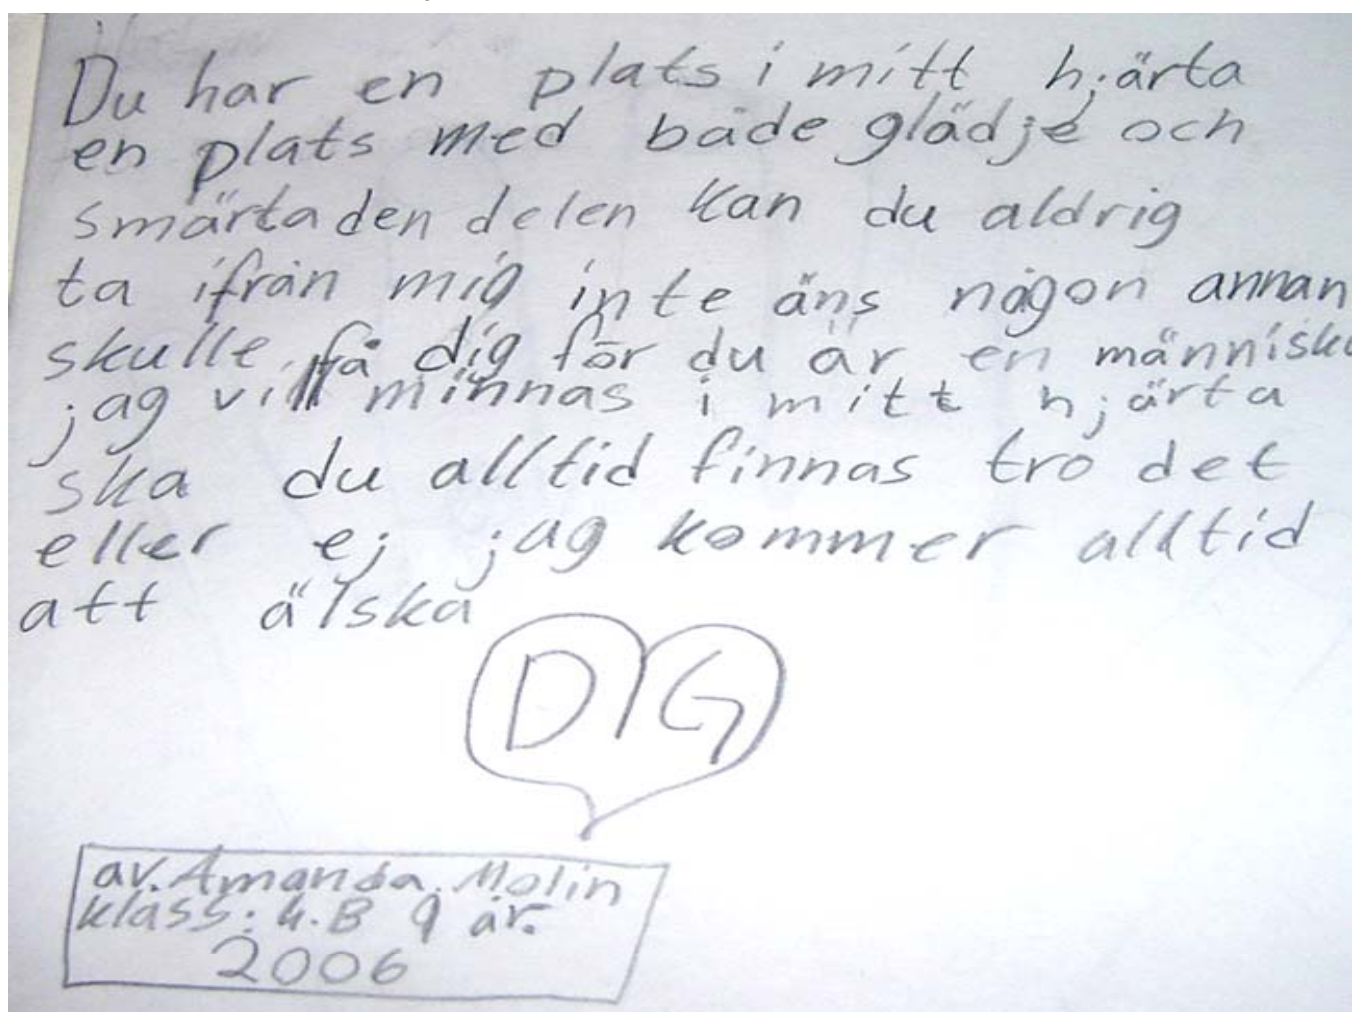 Du har en plats i mitt hjärta
en plats med både glädje och
smärta den delen kan du aldrig
ta ifrån mig inte äns någon annan
skulle få dig för du är en människa
jag vill minnas i mitt hjärta
ska du alltid finnas tro det
eller ej jag kommer alltid
att älska
DIG
av. Amanda. Molin
klass: 4.B 9 år.
2006